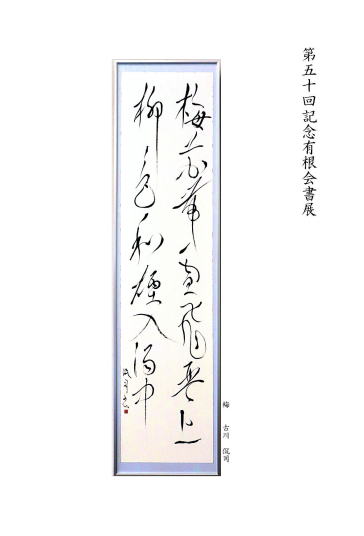 第五十回記念有根会書展
梅花帯雪飛琴上
柳色和煙入酒中
梅 古川